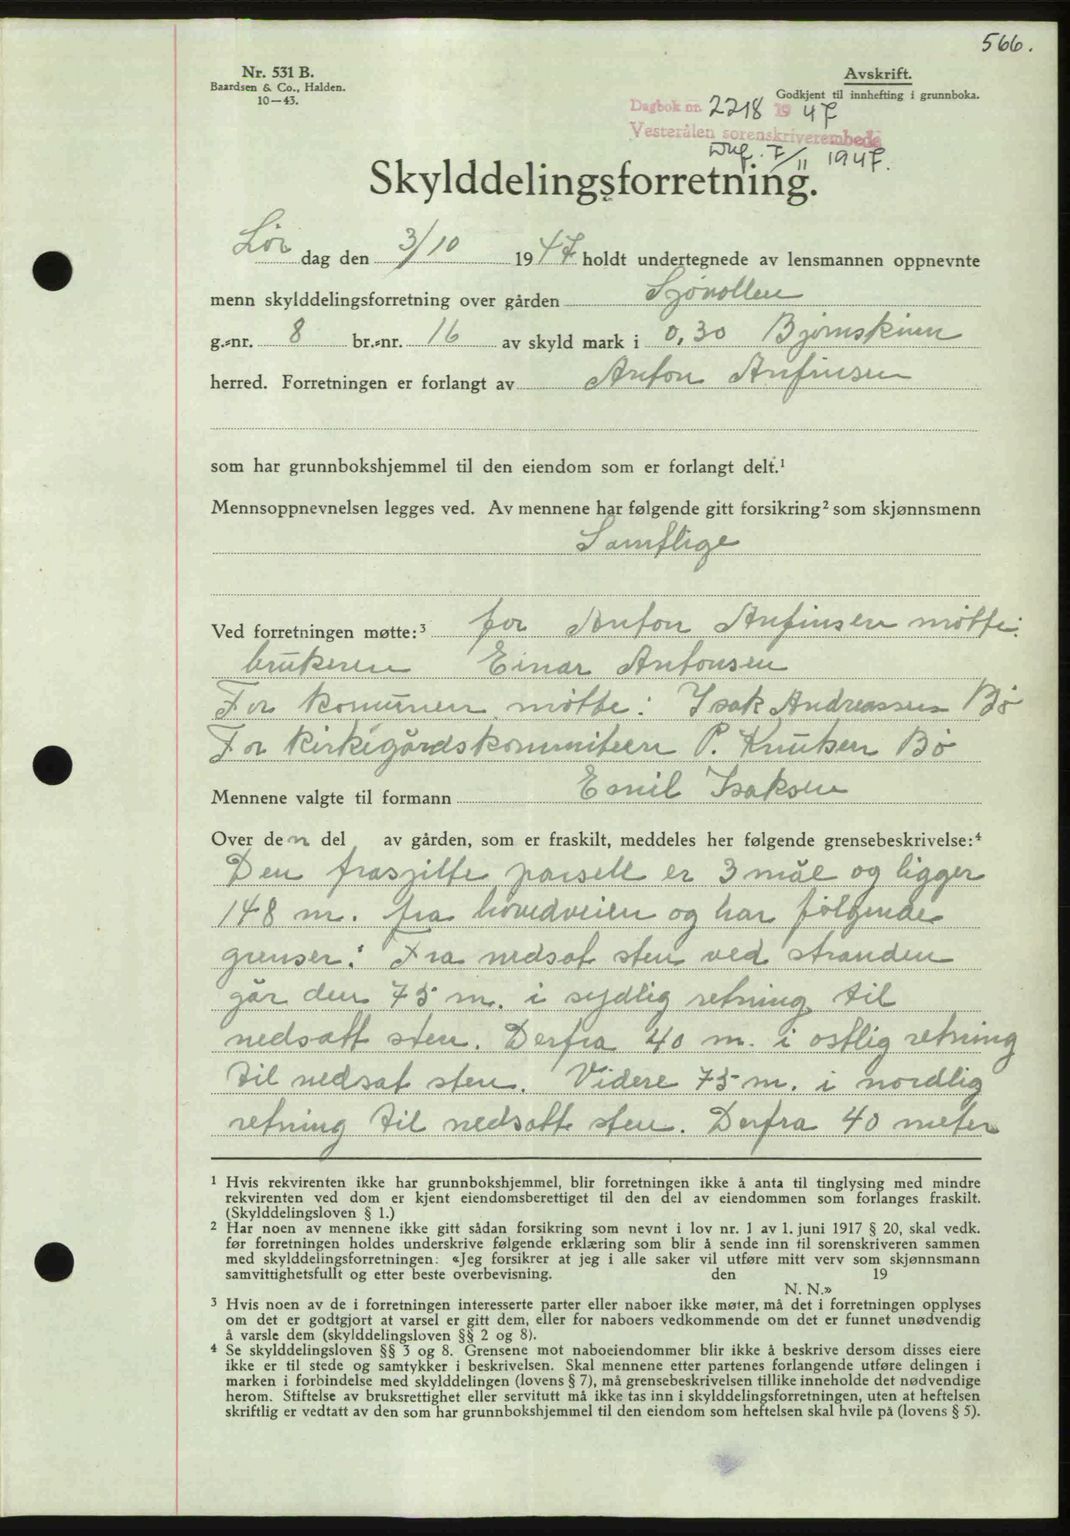 566.
Nr. 531 B.
Baardsen & Co., Halden.
10—43.
Avskrift.
Godkjent til innhefting i grunnboka.
Dagbok nr. 2218 19 47
Vesterålen sorenskriverembede
7/11 1947.
Skylddelingsforretning.
Lør dag den 3/10 1947 holdt undertegnede av lensmannen oppnevnte
menn skylddelingsforretning over gården Sjøvollen
g.-nr. 8 br.-nr. 16 av skyld mark i 0,30 Bjørnskinn
herred. Forretningen er forlangt av Anton Anfinsen
som har grunnbokshjemmel til den eiendom som er forlangt delt.¹
Mennsoppnevnelsen legges ved. Av mennene har følgende gitt forsikring² som skjønnsmenn
Samtlige
Ved forretningen møtte:³ for Anton Anfinsen møtte:
brukeren Einar Antonsen
For komunen møtte: Isak Andreassen Bø
For kirkegårdskommiteen P. Knutsen Bø
Mennene valgte til formann Emil Isaksen
Over den del av gården, som er fraskilt, meddeles her følgende grensebeskrivelse:⁴
Den fraskilte parsell er 3 mål og ligger
148 m. fra hovedveien og har følgende
grenser: Fra nedsat sten ved stranden
går den 75 m. i sydlig retning til
nedsatt sten. Derfra 40 m. i østlig retning
til nedsat sten. Videre 75 m. i nordlig
retning til nedsatt sten. Derfra 40 meter
¹ Hvis rekvirenten ikke har grunnbokshjemmel, blir forretningen ikke å anta til tinglysing med mindre
rekvirenten ved dom er kjent eiendomsberettiget til den del av eiendommen som forlanges fraskilt.
(Skylddelingsloven § 1.)
² Har noen av mennene ikke gitt sådan forsikring som nevnt i lov nr. 1 av 1. juni 1917 § 20, skal vedk.
før forretningen holdes underskrive følgende erklæring som blir å sende inn til sorenskriveren sammen
med skylddelingsforretningen: «Jeg forsikrer at jeg i alle saker vil utføre mitt verv som skjønnsmann
samvittighetsfullt og etter beste overbevisning. den 19
N. N.»
³ Hvis noen av de i forretningen interesserte parter eller naboer ikke møter, må det i forretningen opplyses
om det er godtgjort at varsel er gitt dem, eller for naboers vedkommende om det er funnet unødvendig
å varsle dem (skylddelingsloven §§ 2 og 8).
⁴ Se skylddelingsloven §§ 3 og 8. Grensene mot naboeiendommer blir ikke å beskrive dersom disses eiere
ikke er til stede og samtykker i beskrivelsen. Skal mennene etter partenes forlangende utføre delingen i
marken i forbindelse med skylddelingen (lovens § 7), må grensebeskrivelsen tillike inneholde det nødvendige
herom. Stiftelse av bruksrettighet eller servitutt må ikke tas inn i skylddelingsforretningen, uten at heftelsen
skriftlig er vedtatt av den som har grunnbokshjemmel til den eiendom som heftelsen skal hvile på (lovens § 5).